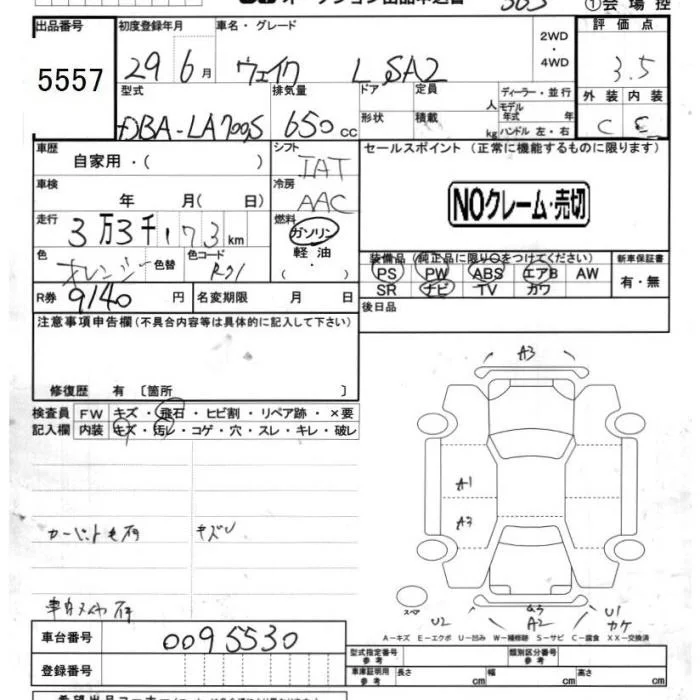 ①会場控
出品番号 初度登録年月 車名・グレード 評価点
5557 29 6月 ウェイク L SA2 2WD・4WD 3.5
型式 排気量 ドア 定員 人 ディーラー・並行 外装 内装
DBA-LA700S 650cc 形状 積載 kg モデル年式 年 ハンドル 左・右 C
車歴 シフト セールスポイント（正常に機能するものに限ります）
自家用・( ) IAT
車検 冷房
年 月(日) AAC NOクレーム・売切
走行 燃料
3万3千173km ガソリン
色 色替 色コード 軽油 装備品（純正品に限り○をつけてください） 新車保証書
オレンジ R71 ( ・ ) PS PW ABS エアB AW 有・無
R券 9140円 名変期限 月 日 SR ナビ TV カワ
注意事項申告欄（不具合内容等は具体的に記入して下さい） 後日品
修復歴 有〔箇所 〕
検査員 FW キズ・飛石・ヒビ割・リペア跡・×要
記入欄 内装 キズ・汚レ・コゲ・穴・スレ・キレ・破レ
A3
A1
A3
キズU
スペア
U2 A2 U1
カケ
A－キズ E－エクボ U－凹み W－補修跡 S－サビ C－腐食 XX－交換済
車台番号 0095530 型式指定番号 参考 類別区分番号 参考
登録番号 車庫証明用 参考 長さ cm 幅 cm 高さ cm